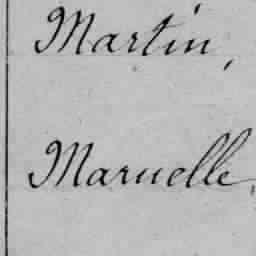 Martin,
Maruelle,